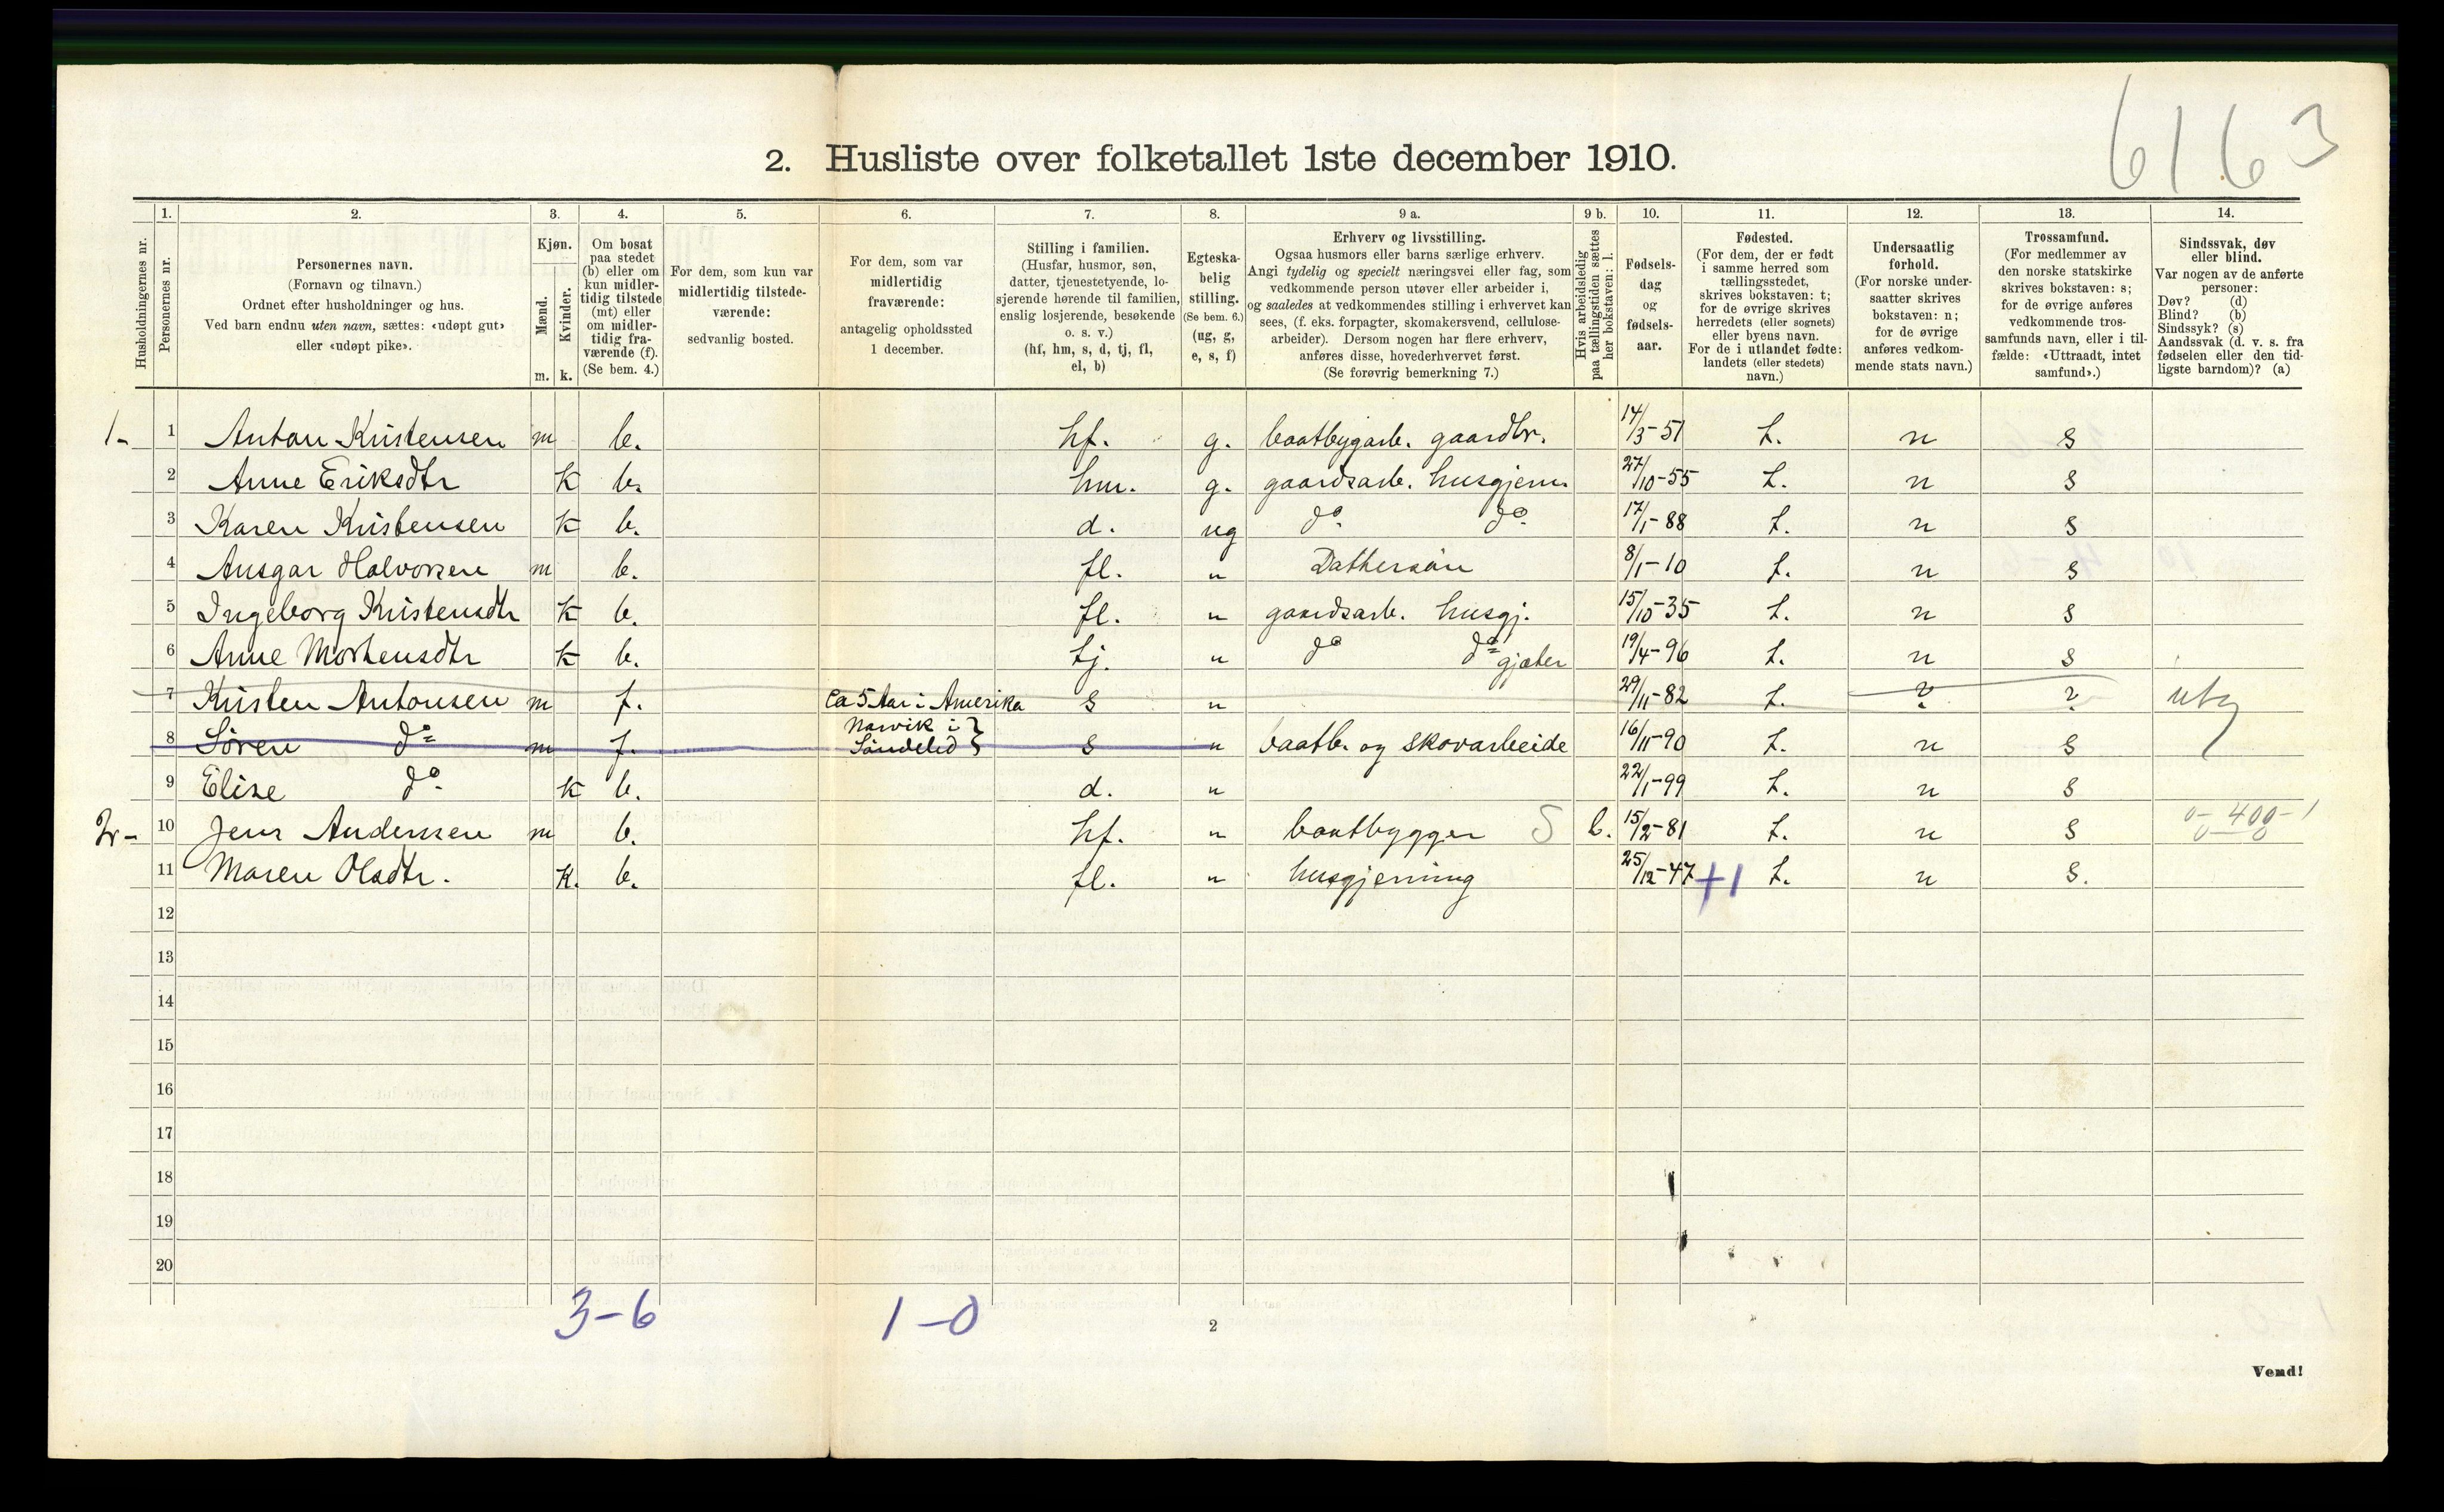 6163
2. Husliste over folketallet 1ste december 1910.
Husholdningernes nr.
1. Personernes nr.
2. Personernes navn. (Fornavn og tilnavn.) Ordnet efter husholdninger og hus. Ved barn endnu uten navn, sættes: «udøpt gut» eller «udøpt pike».
3. Kjøn. Mænd. m. Kvinder. k.
4. Om bosat paa stedet (b) eller om kun midler-tidig tilstede (mt) eller om midler-tidig fra-værende (f). (Se bem. 4.)
5. For dem, som kun var midlertidig tilstede-værende: sedvanlig bosted.
6. For dem, som var midlertidig fraværende: antagelig opholdssted 1 december.
7. Stilling i familien. (Husfar, husmor, søn, datter, tjenestetyende, lo-sjerende hørende til familien, enslig losjerende, besøkende o. s. v.) (hf, hm, s, d, tj, fl, el, b)
8. Egteska-belig stilling. (Se bem. 6.) (ug, g, e, s, f)
9 a. Erhverv og livsstilling. Ogsaa husmors eller barns særlige erhverv. Angi tydelig og specielt næringsvei eller fag, som vedkommende person utøver eller arbeider i, og saaledes at vedkommendes stilling i erhvervet kan sees, (f. eks. forpagter, skomakersvend, cellulose-arbeider). Dersom nogen har flere erhverv, anføres disse, hovederhvervet først. (Se forøvrig bemerkning 7.)
9 b. Hvis arbeidsledig paa tællingstiden sættes her bokstaven: l.
10. Fødsels-dag og fødsels-aar.
11. Fødested. (For dem, der er født i samme herred som tællingsstedet, skrives bokstaven: t; for de øvrige skrives herredets (eller sognets) eller byens navn. For de i utlandet fødte: landets (eller stedets) navn.)
12. Undersaatlig forhold. (For norske under-saatter skrives bokstaven: n; for de øvrige anføres vedkom-mende stats navn.)
13. Trossamfund. (For medlemmer av den norske statskirke skrives bokstaven: s; for de øvrige anføres vedkommende tros-samfunds navn, eller i til-fælde: «Uttraadt, intet samfund».)
14. Sindssvak, døv eller blind. Var nogen av de anførte personer: Døv? (d) Blind? (b) Sindssyk? (s) Aandssvak (d. v. s. fra fødselen eller den tid-ligste barndom)? (a)
1- 1 Anton Kristensen m b. hf. g. baatbygarb. gaardbr. 14/3-51 t. n s
2 Anne Eriksdtr k b. hm. g. gaardsarb. husgjern. 27/10-55 t. n s
3 Karen Kristensen k b. d. ug do. do. 17/1-88 t. n s
4 Ansgar Halvorsen m b. fl. " Dattersøn 8/1-10 t. n s
5 Ingeborg Kristensdtr k b. fl. " gaardsarb. husgj. 15/10-35 t. n s
6 Anne Mortensdtr k b. tj. " do do gjæter 19/4-96 t. n s
7 Kristen Antonsen m f. Ca 5 Aar i Amerika s " 29/11-82 t. ? ? utg
8 Sören do m f. Narvik i Söndeled } s " baatb. og skovarbeide 16/11-90 t. n s
9 Elise do. k b. d. " 22/1-99 t. n s
2- 10 Jens Anderssen m b. hf. " baatbygger S l. 15/2-81 t. n s 0-400-1 0-0
11 Maren Olsdtr. k. b. fl. " husgjerning 25/12-47 +1 t. n s.
12
13
14
15
16
17
18
19
20
3-6 1-0
2
Vend!